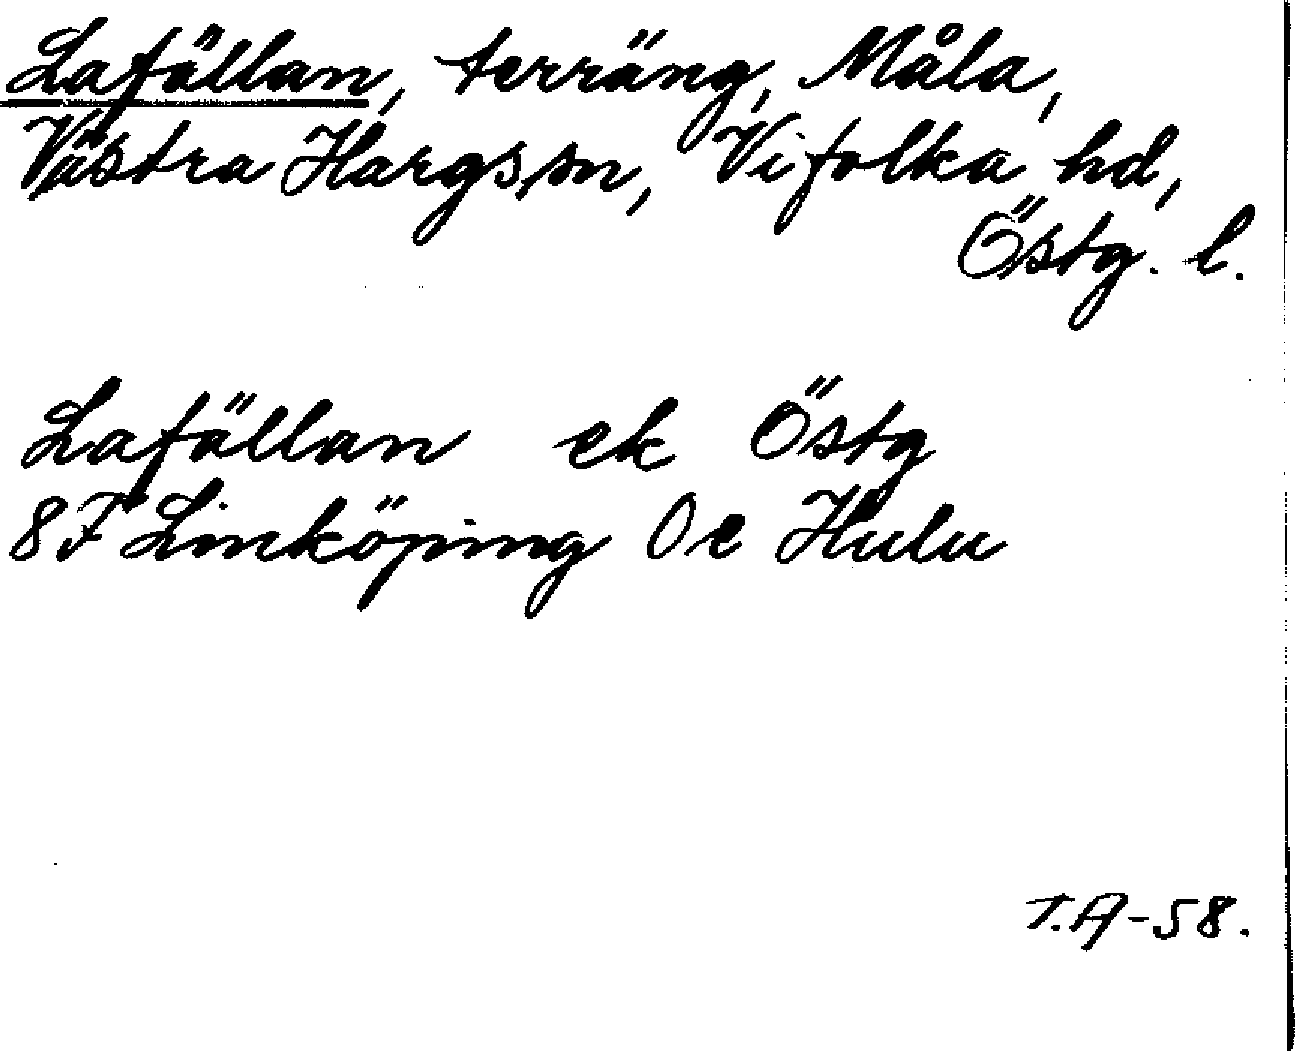 Lafällan, terräng, Måla,
Västra Hargs sn, Vifolka hd,
Östg. l.
Lafällan ek Östg
8F Linköping Oe Hulu
T.A-58.